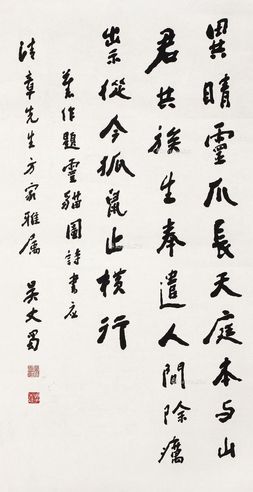 異晴靈爪長天庭本与山
君共族生奉遣人間除癘
出示從今狐鼠止橫行
舊作題靈貓圖詩書應
清章先生方家雅屬 吴丈蜀